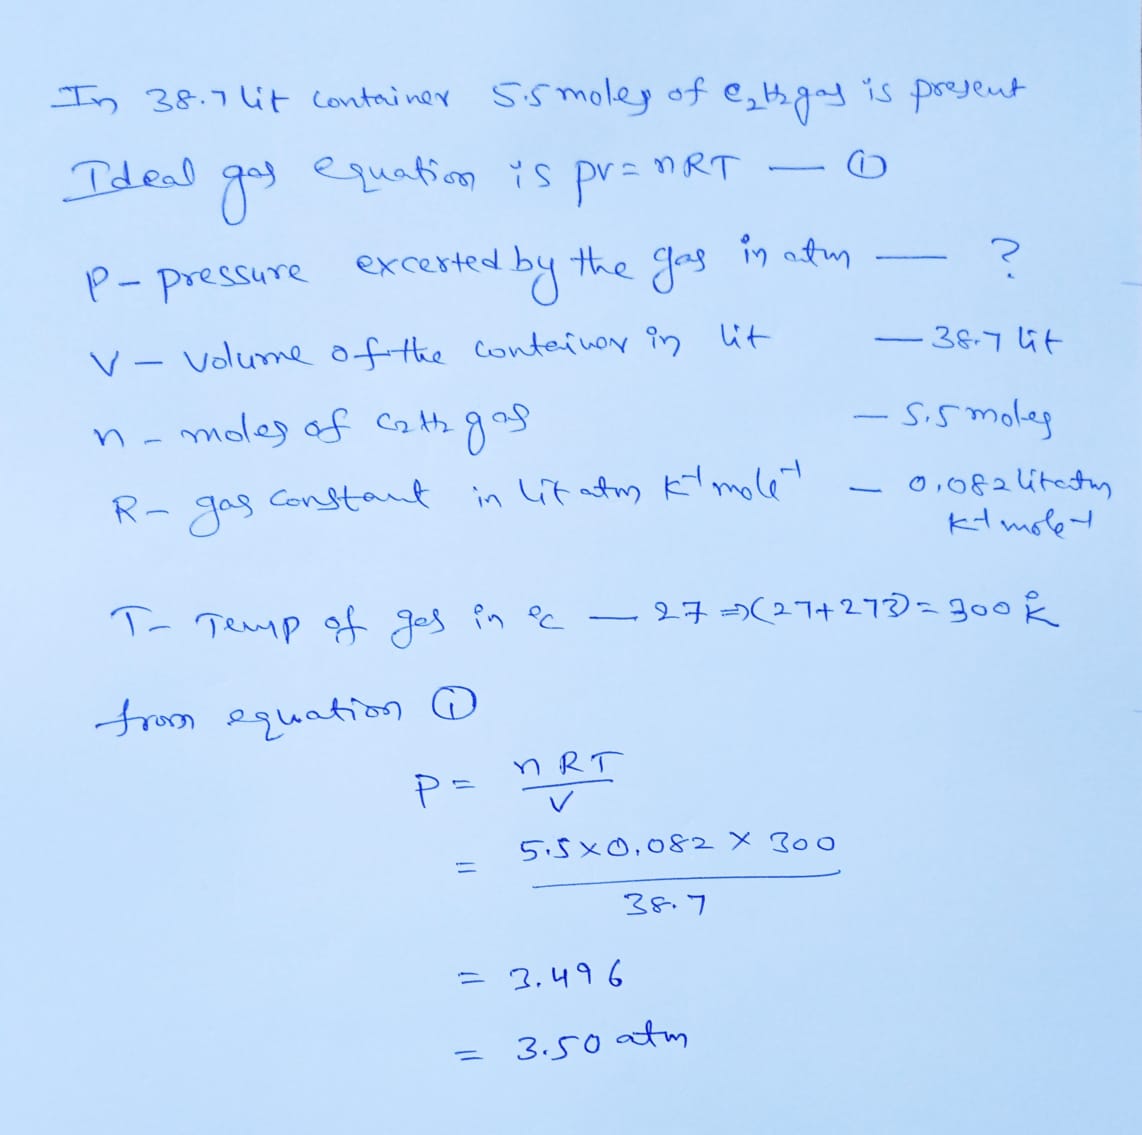 In 38.7 lit container 5.5 moles of C2H2 gas is present
Ideal gas equation is pv = nRT — ①
P - pressure excerted by the gas in atm — ?
V - volume of the container in lit — 38.7 lit
n - moles of C2H2 gas — 5.5 moles
R - gas constant in lit atm K⁻¹ mole⁻¹ — 0.082 lit atm
K⁻¹ mole⁻¹
T - Temp of gas in °c — 27 ⇒ (27+273) = 300 °K
from equation ①
P = nRT
V
= 5.5 × 0.082 × 300
38.7
= 3.496
= 3.50 atm